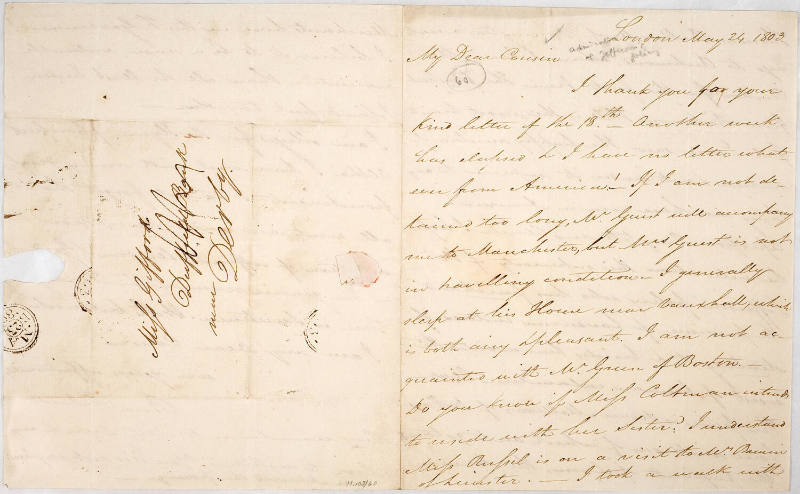 Miss Gifford
Duffield Bank
near Derby
London May 24, 1803
My Dear Cousin
60
I thank you for your
kind letter of the 18th – Another week
has elapsed & I have no letter what-
ever from America! – If I am not de-
tained too long, Mr Guest will accompany
me to Manchester, but Mrs Guest is not
in travelling condition – I generally
sleep at his House near Vauxhall, which
is both airy & pleasant. I am not ac-
quainted with Mr Green of Boston. –
Do you know if Miss Coltman intends
to reside with her Sister? I understand
Miss Russel is on a visit to Mr
of Leicester. – I took a walk with